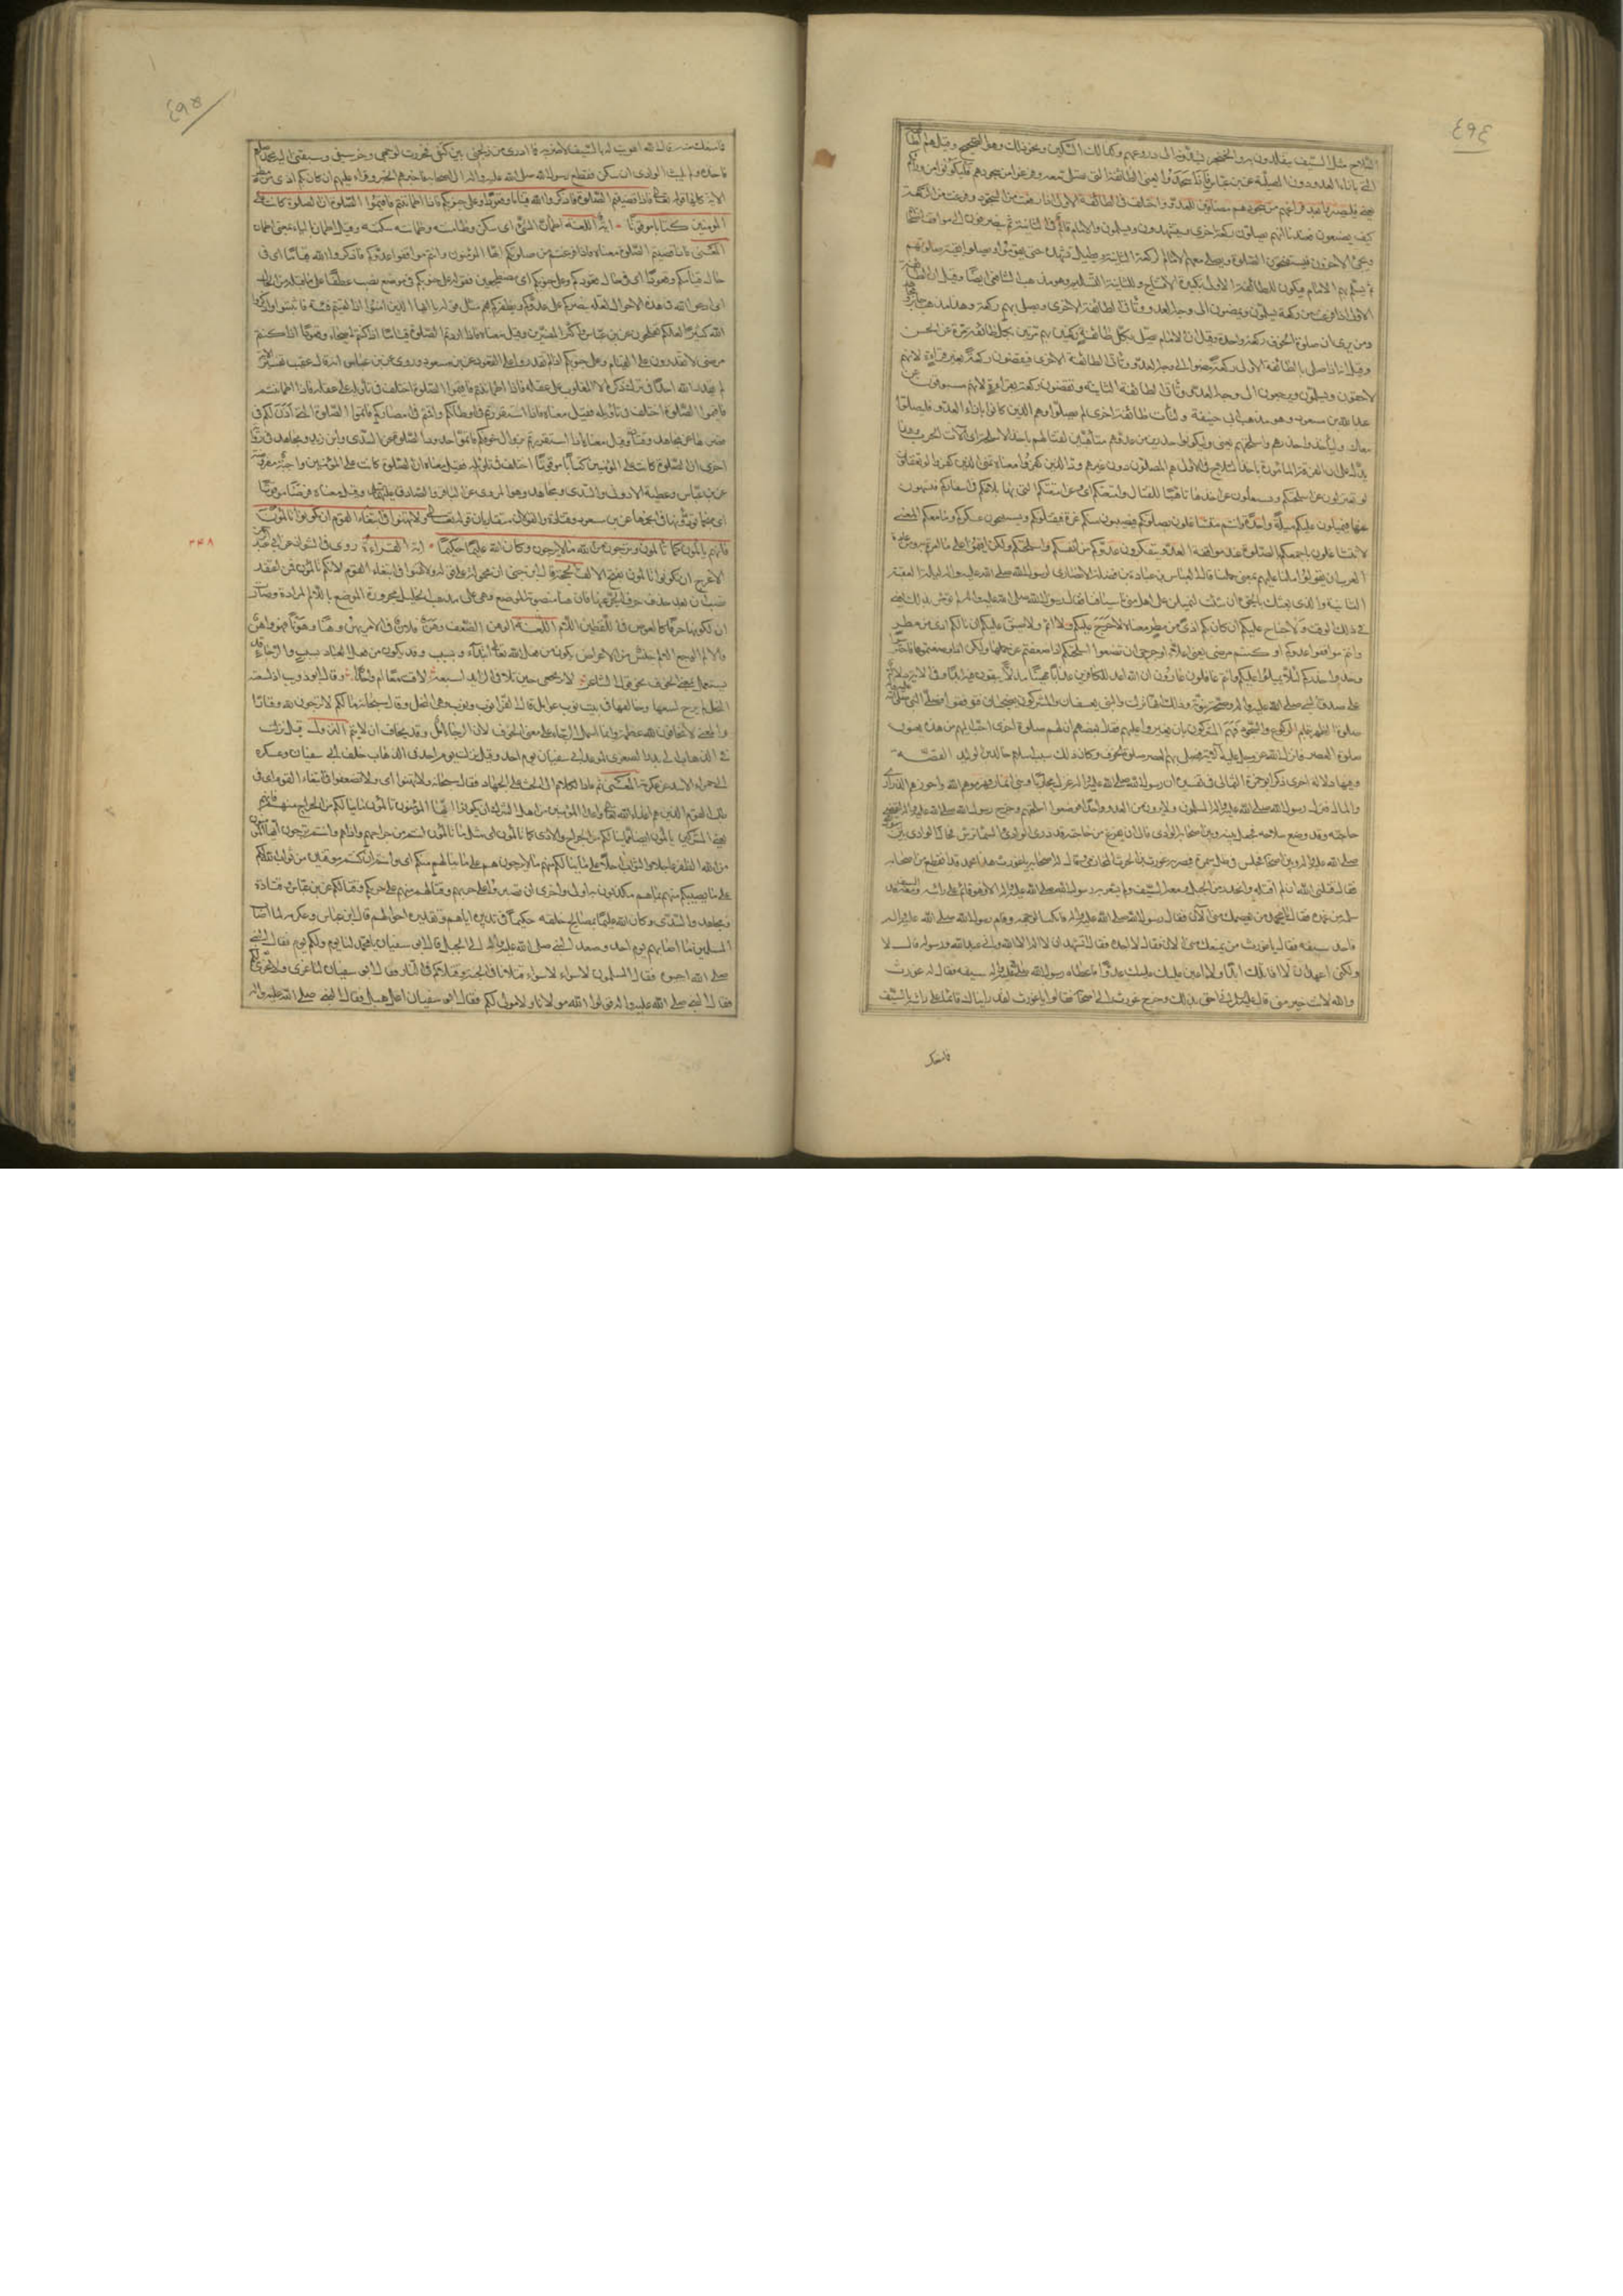 ٤٩٤
السلاح مثل السيف يتقلدون به والخنجر يشدونه الى دروعهم وكذلك السكين ونحو ذلك وهو الصحيح وقيل هم الطائفة
التي بازاء العدو دون المصلية عن ابن عباس فاذا سجدوا يعني الطائفة التي تصلي معه وفرغوا من سجودهم فليكونوا من ورائكم
يعني فليصيروا بعد فراغهم من سجودهم مصافين للعدو واختلف في الطائفة الاولى اذا رفعت من السجود وفرغت من الركعة
كيف يصنعون فعندنا انهم يصلون ركعة اخرى ويتشهدون ويسلمون والامام قائم في الثانية ثم ينصرفون الى مواقف اصحابهم
ويجئ الآخرون فيستفتحون الصلوة ويصلي بهم الامام الركعة الثانية ويطيل تشهده حتى يقوموا فيصلوا بقية صلوتهم
ثم يسلم بهم الامام فيكون للطائفة الاولى تكبيرة الافتتاح وللثانية التسليم وهو مذهب الشافعي ايضا وقيل ان الطائفة
الاولى اذا فرغت من ركعة يسلمون ويمضون الى وجه العدو وتأتي الطائفة الاخرى فيصلي بهم ركعة وهذا مذهب جابر ومجاهد
ومن يرى ان صلوة الخوف ركعة واحدة وقيل ان الامام يصلي بكل طائفة ركعتين بهم مرتين بكل طائفة مرة عن الحسن
وقيل انه اذا صلى بالطائفة الاولى ركعة مضوا الى وجه العدو وتأتي الطائفة الاخرى فيقضون ركعة بغير قراءة لانهم
لاحقون ويسلمون ويرجعون الى وجه العدو وتأتي الطائفة الثانية فيقضون ركعة بقراءة لانهم مسبوقون عن
عبد الله بن مسعود وهو مذهب ابي حنيفة ولتأت طائفة اخرى لم يصلوا وهم الذين كانوا بازاء العدو فليصلوا
معك وليأخذوا حذرهم واسلحتهم يعني وليكونوا حذرين من عدوهم متأهبين لقتالهم باخذ الاسلحة اي آلات الحرب وهذا
يدل على ان الفرقة المأمورة باخذ السلاح في الاول هم المصلون دون غيرهم ود الذين كفروا معناه تمنى الذين كفروا لو تغفلون
لو تعتزلون عن اسلحتكم وتشتغلون عن اخذها تأهبا للقتال وامتعتكم اي وعن امتعتكم التي بها بلاغكم في اسفاركم فتسهون
عنها فيميلون عليكم ميلة واحدة وانتم متشاغلون بصلوتكم فيصيبون منكم غرة فيقتلونكم ويستبيحون عسكركم وما معكم المعنى
لا تتشاغلوا باجمعكم بالصلوة عند مواقفة العدو فيتمكن عدوكم من انفسكم واسلحتكم ولكن اقيموها على ما امرتم به ومن عادة
العرب ان يقولوا ملنا عليهم بمعنى حملنا قال العباس بن عبادة بن فضلة الانصاري لرسول الله صلى الله عليه واله ليلة العقبة
الثانية والذي بعثك بالحق ان شئت لنميلن على اهل منى باسيافنا فقال رسول الله صلى الله عليه واله لم نؤمر بذلك يعني
في ذلك الوقت ولا جناح عليكم ان كان بكم اذى من مطر معناه لا حرج عليكم ولا اثم ولا ضيق عليكم ان نالكم اذى من مطر
وانتم مواقفوا عدوكم او كنتم مرضى يعني اعلاء او جرحى ان تضعوا اسلحتكم اذا ضعفتم عن حملها ولكن اذا وضعتموها فاحترسوا
وخذوا حذركم لئلا يميلوا عليكم وانتم غافلون ان الله اعد للكافرين عذابا مهينا مذلا يبقون فيه ابدا وفي الآية دلالة
على صدق النبي صلى الله عليه واله وصحة نبوته وذلك انها نزلت والنبي بعسفان والمشركون بضجنان فتوافقوا فصلى النبي صلى الله عليه واله
صلوة الظهر بتمام الركوع والسجود فهم المشركون بان يغيروا عليهم فقال بعضهم ان لهم صلوة اخرى احب اليهم من هذه يعنون
صلوة العصر فانزل الله عز وجل عليه الآية فصلى بهم العصر صلوة الخوف وكان ذلك سبب اسلام خالد بن الوليد القصة
وفيها دلالة اخرى ذكر ابو حمزة الثمالي في تفسيره ان رسول الله صلى الله عليه واله غزا محاربا وبني انمار فهزمهم الله واحرزوا الذراري
والمال فنزل رسول الله صلى الله عليه واله والمسلمون ولا يرون من العدو واحدا فوضعوا اسلحتهم وخرج رسول الله صلى الله عليه واله ليقضي
حاجته وقد وضع سلاحه فجعل بينه وبين اصحابه الوادي فالى ان يفرغ من حاجته وقد درأ الوادي والسماء ترش فحال الوادي بين رسول الله
صلى الله عليه واله وبين اصحابه وجلس في ظل سمرة فبصر به غورث بن الحارث المحاربي فقال له اصحابه يا غورث هذا محمد قد انقطع من اصحابه
فقال قتلني الله ان لم اقتله وانحدر من الجبل ومعه السيف ولم يشعر به رسول الله صلى الله عليه واله الا وهو قائم على رأسه ومعه السيف قد
سله من غمده فقال يا محمد من يعصمك مني الآن فقال رسول الله صلى الله عليه واله الله فانكب لوجهه وقام رسول الله صلى الله عليه واله
فاخذ سيفه فقال يا غورث من يمنعك مني الآن فقال لا احد فقال اتشهد ان لا اله الا الله واني عبد الله ورسوله قال لا
ولكني اعهد ان لا اقاتلك ابدا ولا اعين عليك عدوا فاعطاه رسول الله صلى الله عليه واله سيفه فقال له غورث
والله لانت خير مني قال عليه السلام اني احق بذلك وخرج غورث الى اصحابه فقالوا يا غورث لقد رأيناك قائما على رأسه بالسيف
فامنعك
٤٩٥
فما منعك منه قال الله اهويت له بالسيف لاضربه فما ادري من زلخني بين كتفي فخررت لوجهي وخر سيفي وسبقني اليه محمد صلعم
فاخذه ولم يلبث الوادي ان سكن فقطع رسول الله صلى الله عليه واله الى اصحابه فاخبرهم الخبر وقرأ عليهم ان كان بكم اذى من مطر
الآية كلها قوله تعالى فاذا قضيتم الصلوة فاذكروا الله قياما وقعودا وعلى جنوبكم فاذا اطمأننتم فاقيموا الصلوة ان الصلوة كانت على
المؤمنين كتابا موقوتا آية اللغة اطمأن الشئ اي سكن وطأمنه وطمأنه سكنه وقيل اطمأن بالباء بمعنى اطمأن
المعنى فاذا قضيتم الصلوة معناه واذا فرغتم من صلوتكم ايها المؤمنون وانتم مواقفوا عدوكم فاذكروا الله قياما اي في
حال قيامكم وقعودا اي في حال قعودكم وعلى جنوبكم اي مضطجعين فقوله وعلى جنوبكم في موضع نصب عطفا على ما قبله من الحال
اي ادعوا الله في هذه الاحوال لعله ينصركم على عدوكم ويظفركم بهم مثل قوله يا ايها الذين امنوا اذا لقيتم فئة فاثبتوا واذكروا
الله كثيرا لعلكم تفلحون عن ابن عباس واكثر المفسرين وقيل معناه فاذا اردتم الصلوة فصلوا قياما اذا كنتم اصحاء وقعودا اذا كنتم
مرضى لا تقدرون على القيام وعلى جنوبكم اذا لم تقدروا على القعود عن ابن مسعود وروي عن ابن عباس انه قال عقيب تفسير الآية
لم يعذر الله احدا في ترك ذكره الا المغلوب على عقله فاذا اطمأننتم فاقيموا الصلوة اختلف في تأويله
فاقيموا الصلوة اختلف في تأويله فقيل معناه فاذا استقررتم في اوطانكم واقمتم في امصاركم فاتموا الصلوة التي اذن لكم في
قصرها عن مجاهد وقتادة وقيل معناه فاذا استقررتم بزوال خوفكم فاتموا حدود الصلوة عن السدي وابن زيد ومجاهد في رواية
اخرى ان الصلوة كانت على المؤمنين كتابا موقوتا اختلف في تأويله فقيل معناه ان الصلوة كانت على المؤمنين واجبة مفروضة
عن ابن عباس وعطية العوفي والسدي ومجاهد وهو المروي عن الباقر والصادق عليهما السلام وقيل معناه فرضا موقوتا
اي منجما تؤدونها في انجمها عن ابن مسعود وقتادة والقولان متقاربان قوله تعالى ولا تهنوا في ابتغاء القوم ان تكونوا تألمون
فانهم يألمون كما تألمون وترجون من الله ما لا يرجون وكان الله عليما حكيما آية القراءة روي في الشواذ عن عبد الرحمن
الاعرج ان تكونوا تألمون بفتح الالف الحجة قال ابن جني ان محمولة على قوله ولا تهنوا في ابتغاء القوم لانكم تألمون فمن اعتقد
نصب ان بعد حذف حرف الجر عنها فان هنا منصوبة الموضع وهي على مذهب الخليل مجرورة الموضع باللام المرادة وصارت
ان لكونها حرفا كالعوض في اللفظ من اللام اللغة الوهن الضعف وهن فلان في الامر يهن وهنا ووهونا فهو واهن
والالم الوجع والالم جنس من الاعراض يكون من فعل الله تعالى ابتداء وبسبب وقد يكون من فعل العباد بسبب والرجاء قد
يستعمل بمعنى الخوف نحو قول الشاعر لا ترتجي حين تلاقي الذايد اسبعة لاقت معا ام واحدا وقال ابو ذؤيب اذا لسعته
النحل لم يرج لسعها وخالفها في بيت نوب عواسل قال الفراء نوب ونوب وهو النحل وقال سبحانه ما لكم لا ترجون لله وقارا
والمعنى لا تخافون لله عظمة وانما استعمل الرجاء على معنى الخوف لان الرجاء امل وقد يخاف ان لا يتم النزول قيل نزلت
في الذهاب الى بدر الصغرى لموعد ابي سفيان يوم احد وقيل نزلت يوم احد في الذهاب خلف ابي سفيان وعسكره
الى حمراء الاسد عن عكرمة المعنى ثم عاد الكلام الى الحث على الجهاد فقال سبحانه ولا تهنوا اي ولا تضعفوا في ابتغاء القوم اي في
طلب القوم الذين هم اعداء الله واعداء المؤمنين من اهل الشرك ان تكونوا ايها المؤمنون تألمون مما ينالكم من الجراح منهم فانهم
يعني المشركين يألمون ايضا مما ينالهم منكم من الجراح والاذى كما تألمون اي مثل ما تألمون انتم من جراحهم واذاهم وانتم ترجون ايها المؤمنون
من الله الظفر عاجلا والثواب آجلا على ما ينالكم منهم ما لا يرجون هم على ما ينالهم منكم اي وانتم ان كنتم موقنين من ثواب الله لكم
على ما يصيبكم منهم بما هم مكذبون به اولى واحرى ان تصبروا على حربهم وقتالهم منهم على حربكم وقتالكم عن ابن عباس وقتادة
ومجاهد والسدي وكان الله عليما بمصالح خلقه حكيما في تدبيره اياهم وتقديره احوالهم قال ابن عباس وعكرمة لما اصاب
المسلمين ما اصابهم يوم احد وصعد النبي صلى الله عليه واله الى الجبل قال ابو سفيان يا محمد لنا يوم ولكم يوم فقال النبي
صلى الله اجيبوه فقال المسلمون لا سواء لا سواء قتلانا في الجنة وقتلاكم في النار فقال ابو سفيان لنا عزى ولا عزى لكم
فقال النبي صلى الله عليه واله قولوا الله مولانا ولا مولى لكم فقال ابو سفيان اعل هبل فقال النبي صلى الله عليه واله
٣٤٨